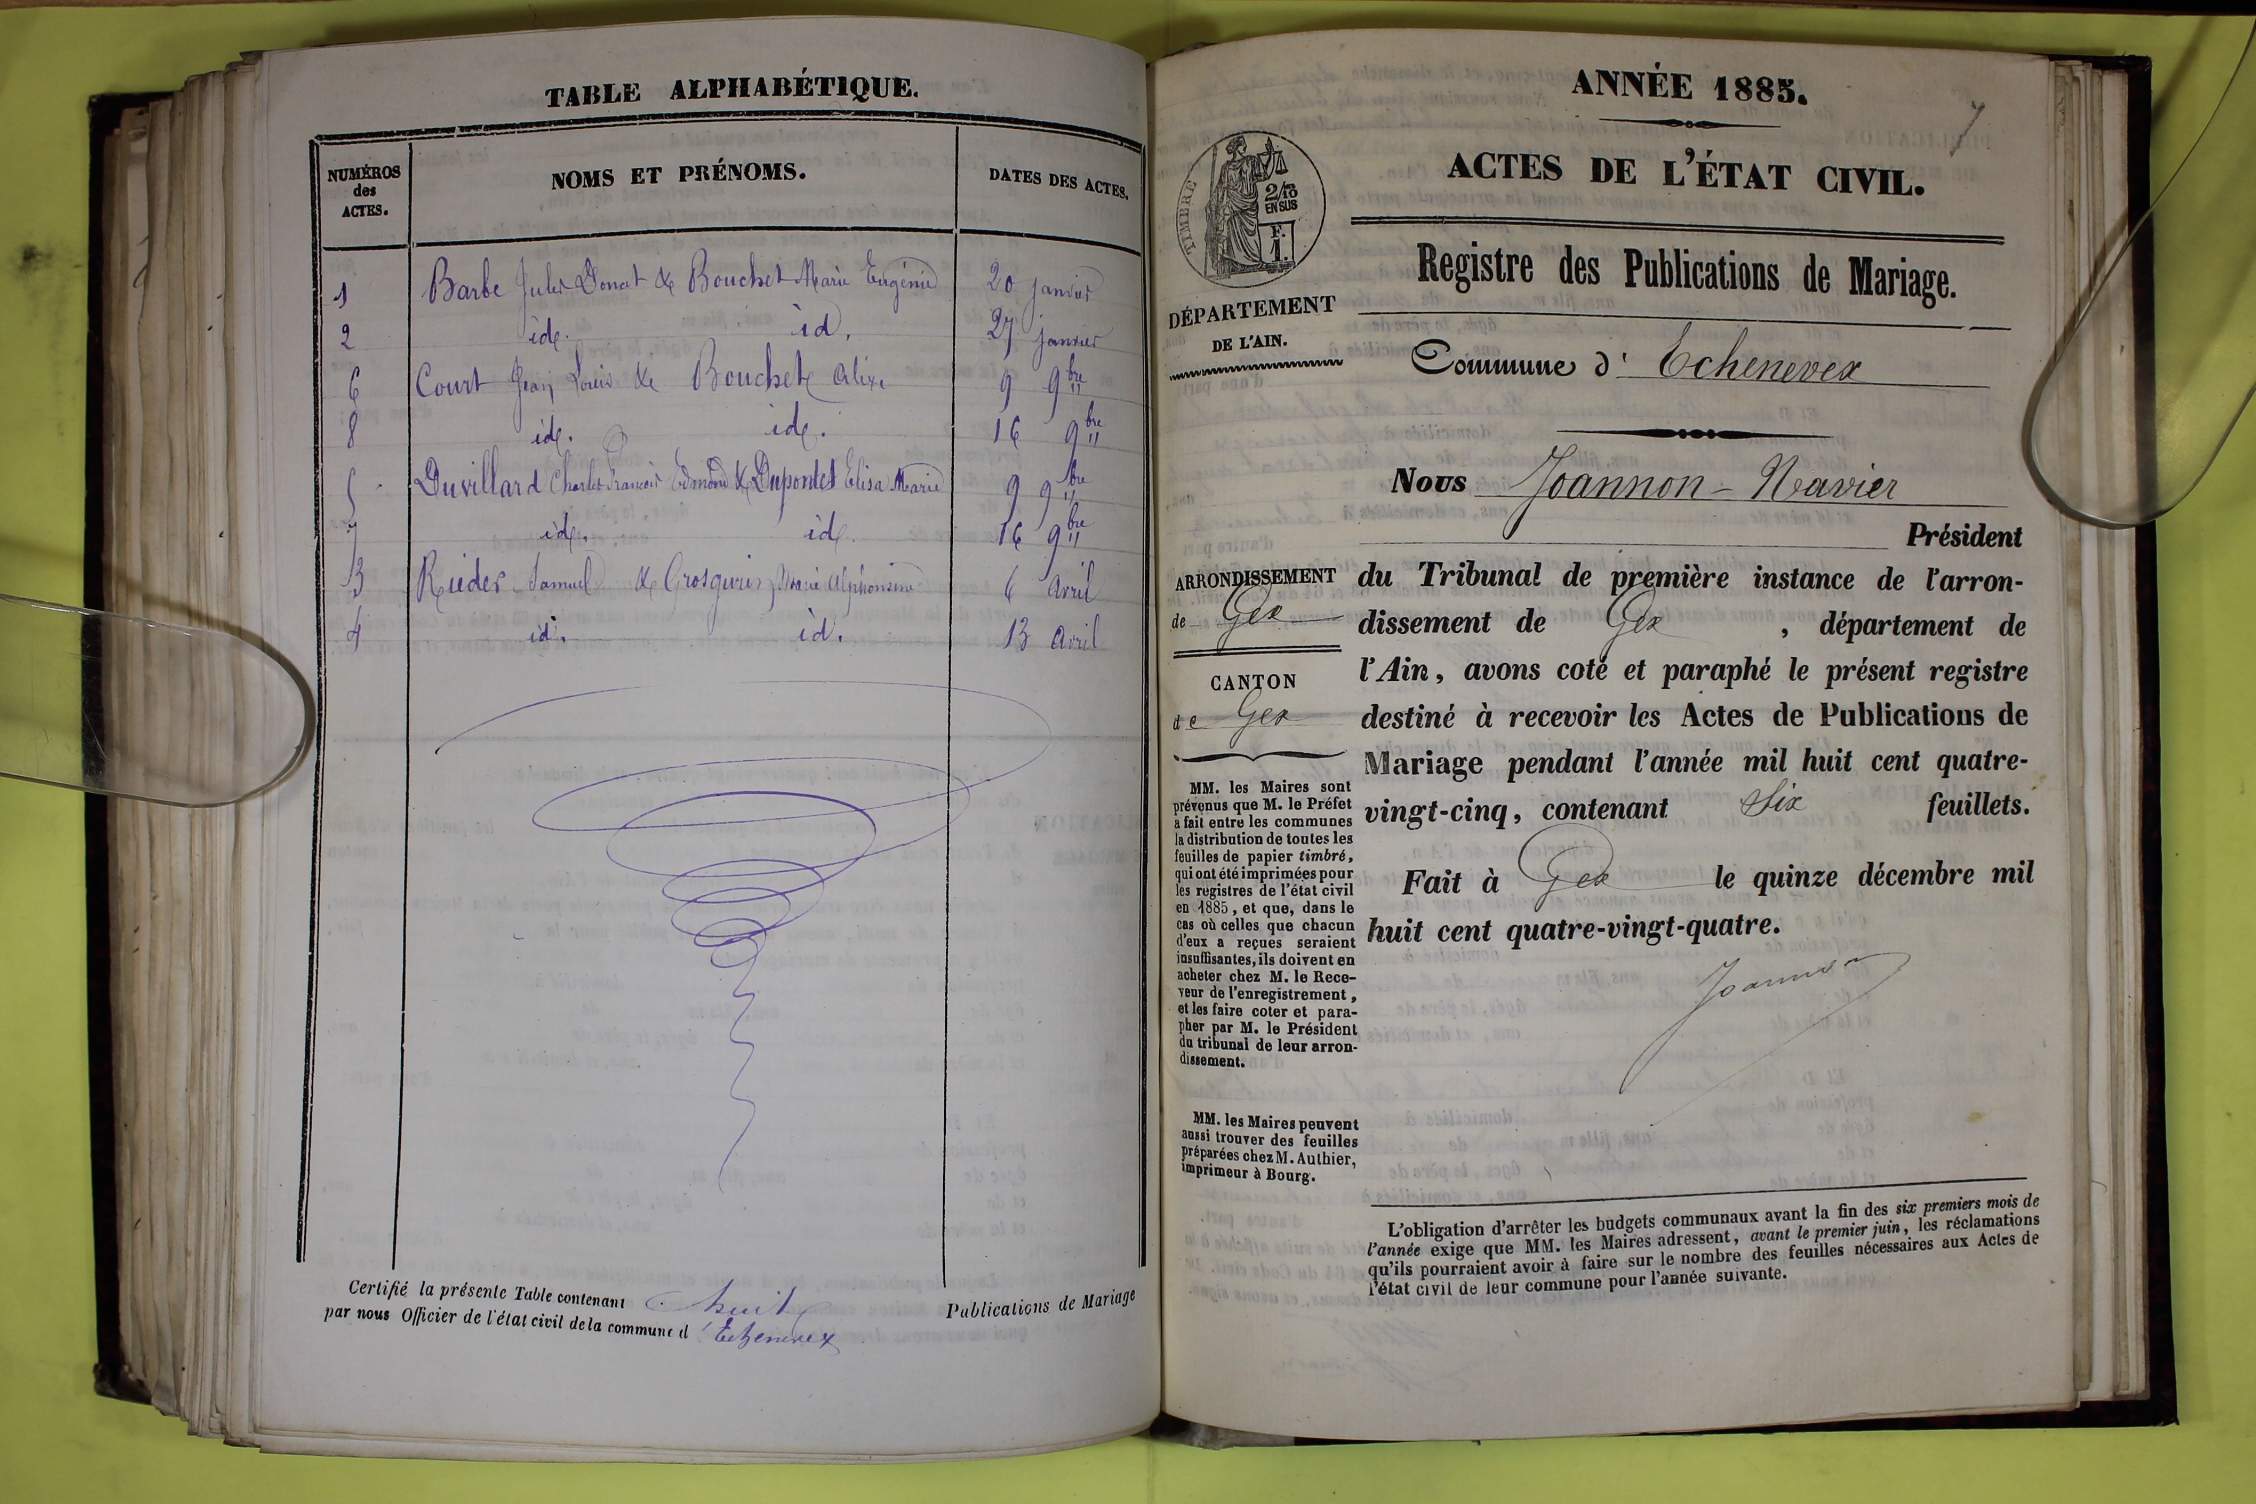 TABLE ALPHABÉTIQUE.
NUMÉROS
des
ACTES.
NOMS ET PRÉNOMS.
DATES DES ACTES.
1 Barbe Jules Donat & Bouchet Marie Eugénie 20 janvier
2 id. id. 27 janvier
6 Court Jean Louis & Bouchet Alixe 9 9bre
8 id. id. 16 9bre
5 Duvillard Charles François Edmond & Dupontet Elisa Marie 9 9bre
7 id. id. 16 9bre
3 Rieder Samuel & Grosgurin Marie Alphonsine 6 avril
4 id. id. 13 avril
Certifié la présente Table contenant huit Publications de Mariage
par nous Officier de l'état civil de la commune d'Echenevex
ANNÉE 1885.
7
ACTES DE L'ÉTAT CIVIL.
TIMBRE
2/10
EN SUS
F.
1.
Registre des Publications de Mariage.
DÉPARTEMENT
DE L'AIN.
Commune d' Echenevex
Nous Joannon-Navier
Président
du Tribunal de première instance de l'arron-
dissement de Gex, département de
l'Ain, avons coté et paraphé le présent registre
destiné à recevoir les Actes de Publications de
Mariage pendant l'année mil huit cent quatre-
vingt-cinq, contenant six feuillets.
Fait à Gex le quinze décembre mil
huit cent quatre-vingt-quatre.
Joannon
ARRONDISSEMENT
de Gex
CANTON
de Gex
MM. les Maires sont
prévenus que M. le Préfet
a fait entre les communes
la distribution de toutes les
feuilles de papier timbré,
qui ont été imprimées pour
les registres de l'état civil
en 1885, et que, dans le
cas où celles que chacun
d'eux a reçues seraient
insuffisantes, ils doivent en
acheter chez M. le Rece-
veur de l'enregistrement,
et les faire coter et para-
pher par M. le Président
du tribunal de leur arron-
dissement.
MM. les Maires peuvent
aussi trouver des feuilles
préparées chez M. Authier,
imprimeur à Bourg.
L'obligation d'arrêter les budgets communaux avant la fin des six premiers mois de
l'année exige que MM. les Maires adressent, avant le premier juin, les réclamations
qu'ils pourraient avoir à faire sur le nombre des feuilles nécessaires aux Actes de
l'état civil de leur commune pour l'année suivante.